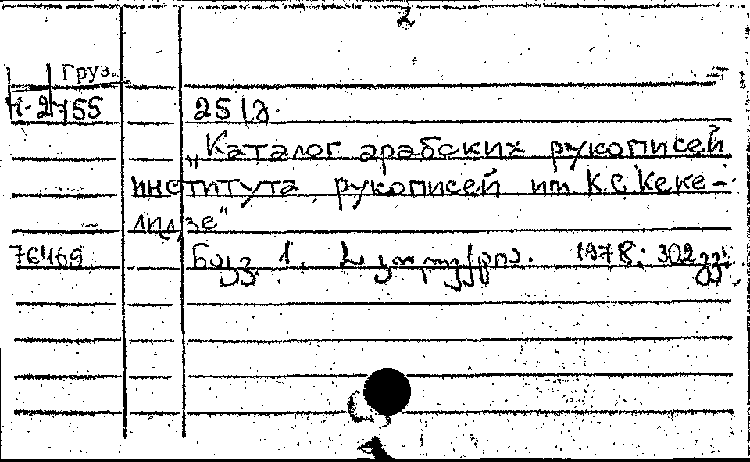 2
Груз.
1-2755
251გ.
„Каталог арабских рукописей
института рукописей им К.С. Кеке-
лидзе"
76469
1. 1978; 302გვ.